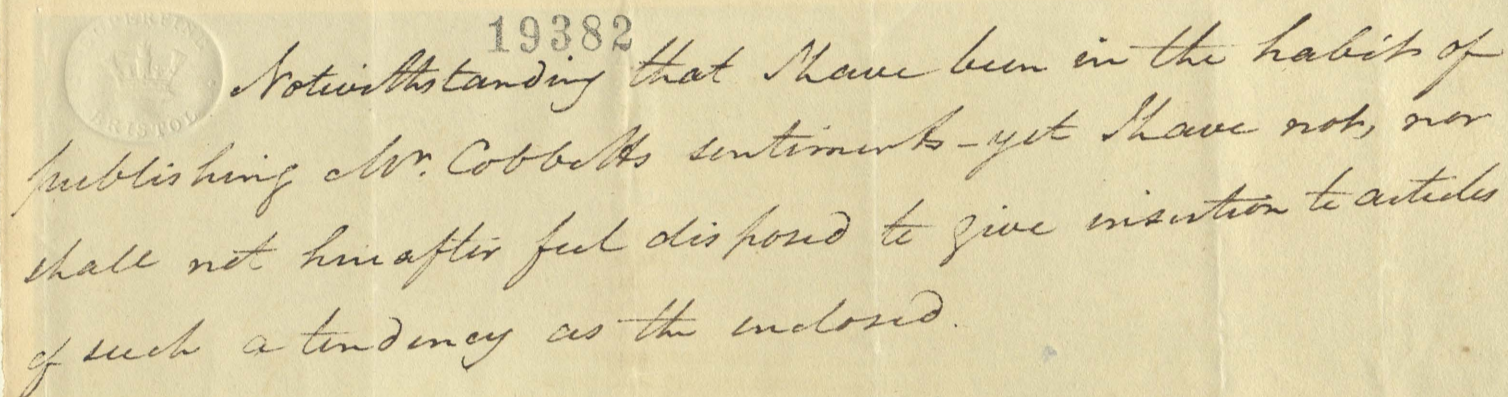 SUPERFINE
BRISTOL
19382
Notwithstanding that I have been in the habit of
publishing Mr. Cobbetts sentiments - yet I have not, nor
shall not hereafter feel disposed to give insertion to articles
of such a tendency as the enclosed.